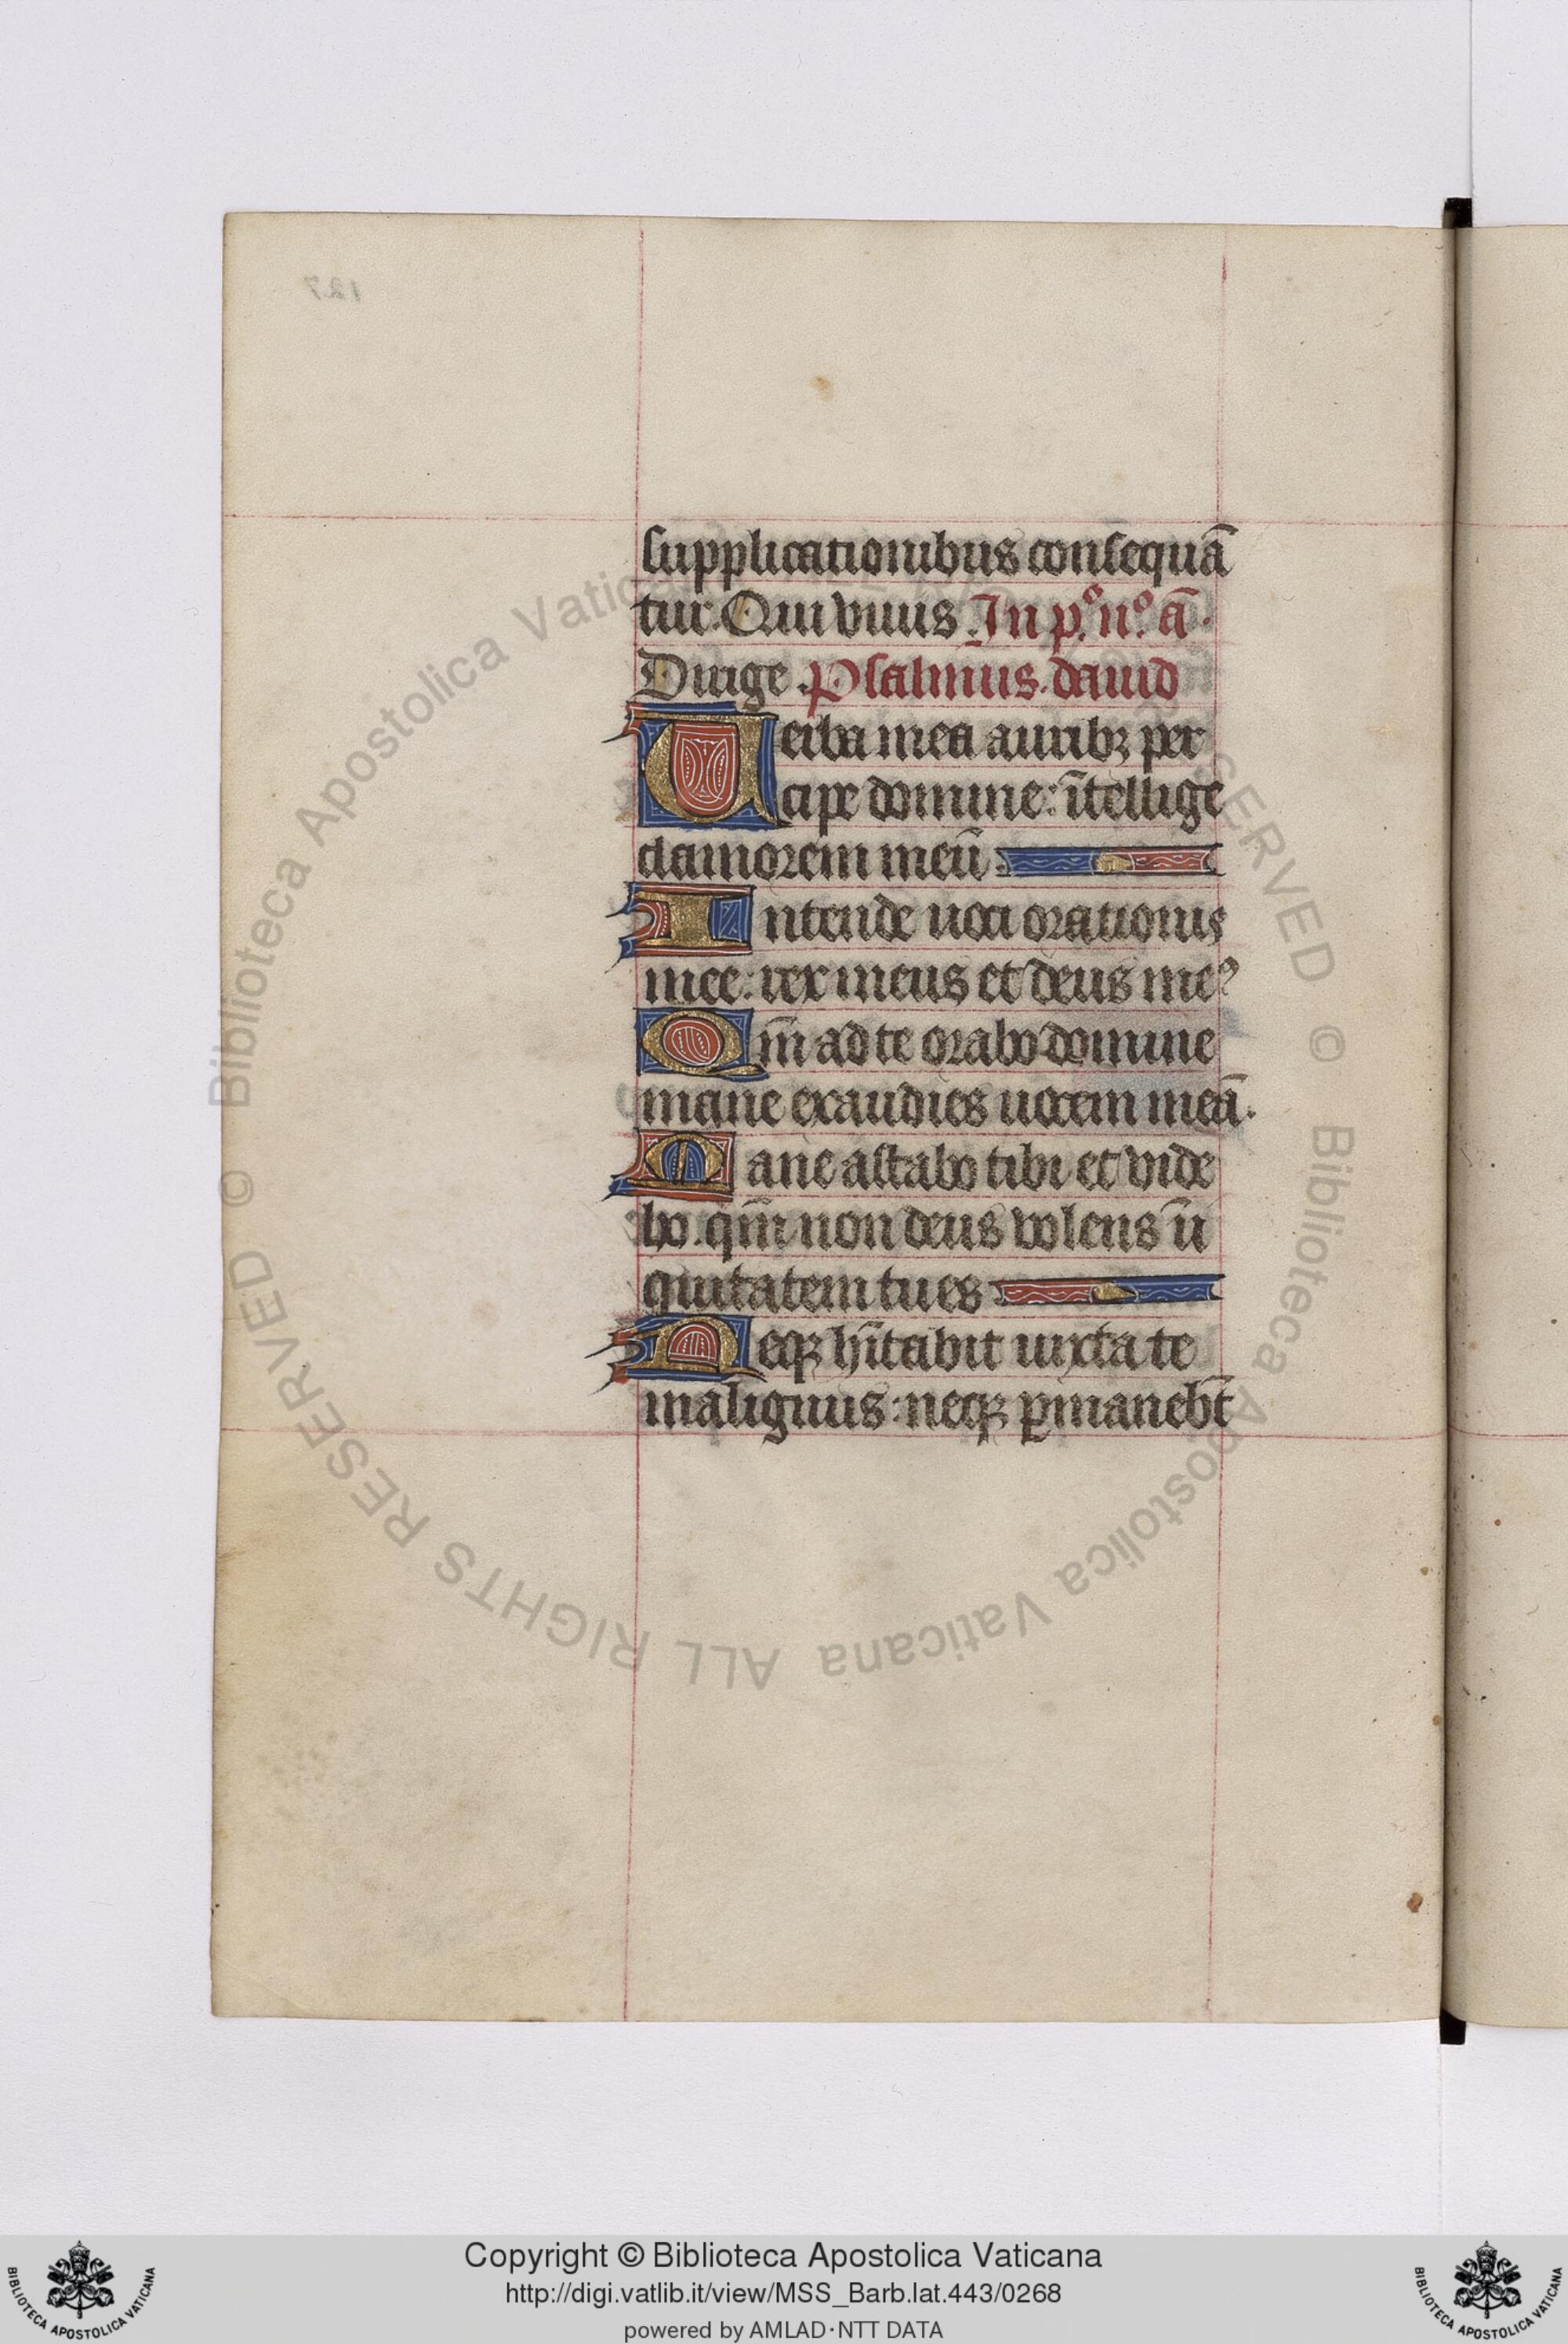 127
supplicationibus consequā
tur. Qui viuis. In p.º nº. ā.
Dirige. Psalmus. dauid
Uerba mea auribꝫ per
cipe domine: ītellige
clamorem meū
Intende uoci orationis
mee: rex meus et deus meꝰ
Qm̄ ad te orabo domine
mane exaudies uocem meā.
Mane astabo tibi et vide
bo. qm̄ non deus volens ī
quitatem tu es
Neqꝫ hītabit iuxta te
malignus: neqꝫ ꝑmanebt̄
© Biblioteca Apostolica Vaticana ALL RIGHTS RESERVED © Biblioteca Apostolica Vaticana ALL RIGHTS RESERVED
Copyright © Biblioteca Apostolica Vaticana
http://digi.vatlib.it/view/MSS_Barb.lat.443/0268
powered by AMLAD·NTT DATA
BIBLIOTECA APOSTOLICA VATICANA
BIBLIOTECA APOSTOLICA VATICANA